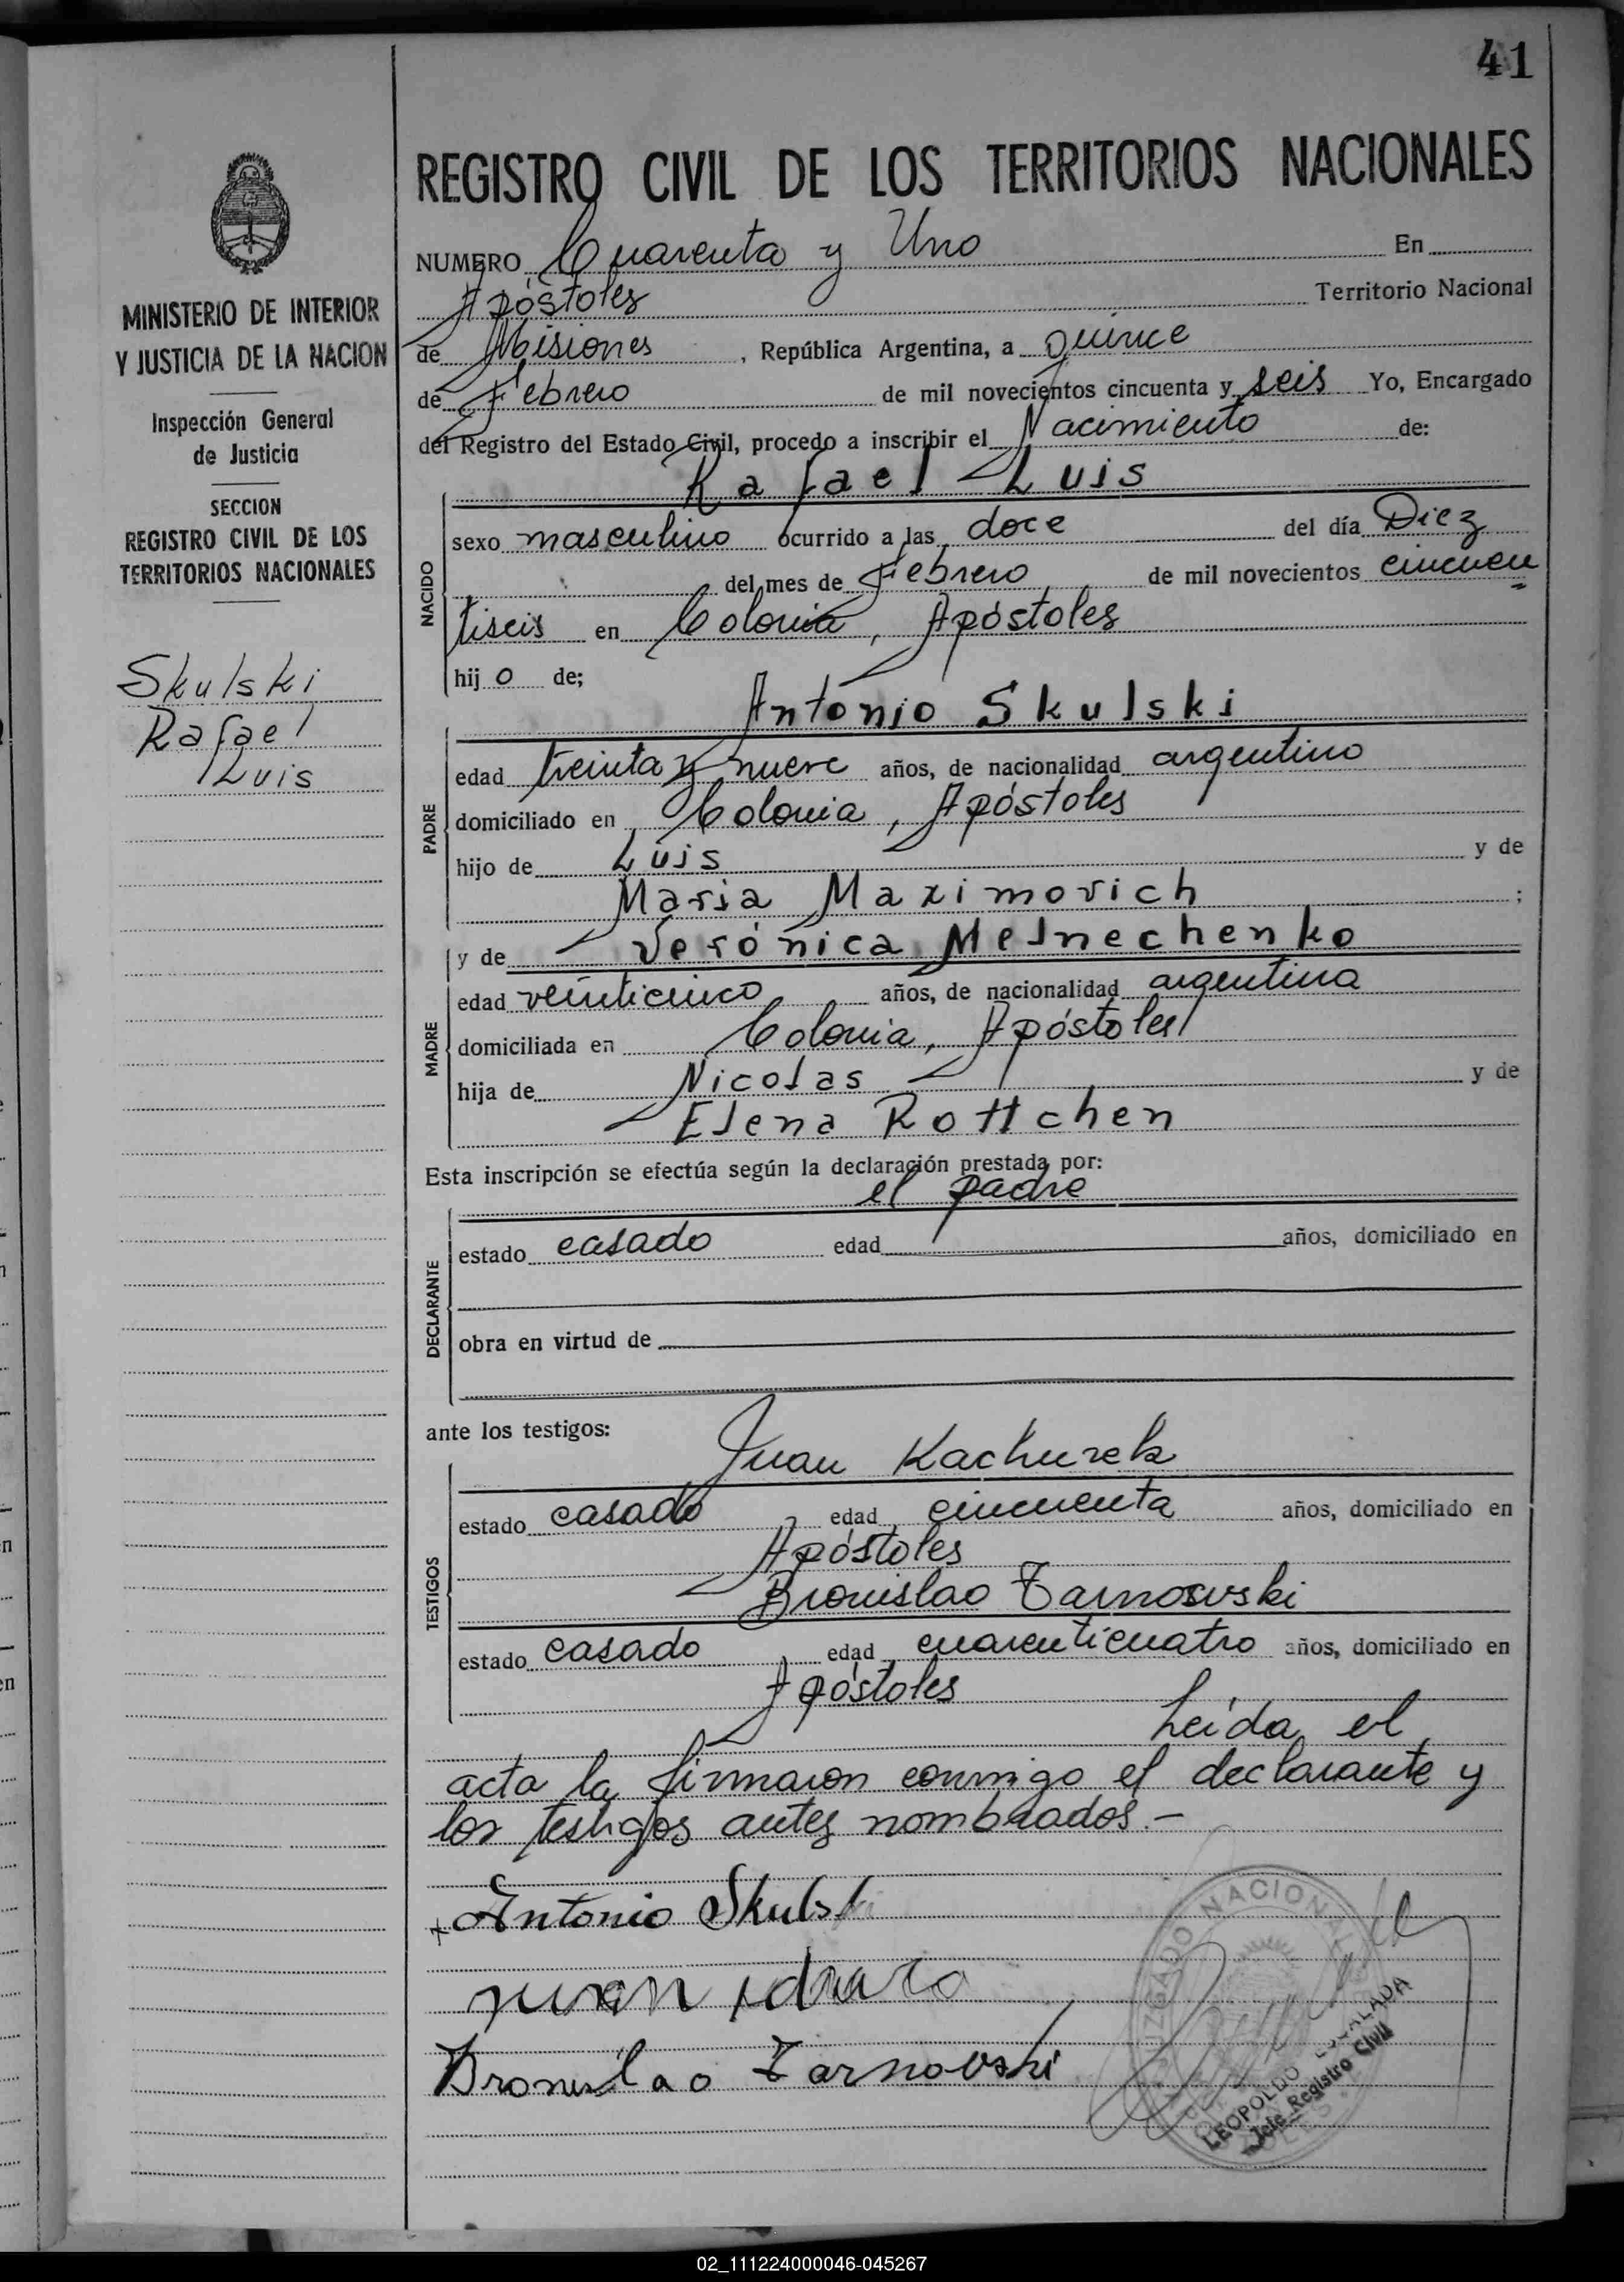 41
MINISTERIO DE INTERIOR
Y JUSTICIA DE LA NACION
Inspección General
de Justicia
SECCION
REGISTRO CIVIL DE LOS
TERRITORIOS NACIONALES
Skulski
Rafael
Luis
REGISTRO CIVIL DE LOS TERRITORIOS NACIONALES
NUMERO Cuarenta y Uno En
Apóstoles Territorio Nacional
de Misiones, República Argentina, a quince
de Febrero de mil novecientos cincuenta y seis Yo, Encargado
del Registro del Estado Civil, procedo a inscribir el Nacimiento de:
Rafael Luis
NACIDO
sexo masculino ocurrido a las doce del día Diez
del mes de Febrero de mil novecientos cincuen
tiseis en Colonia, Apóstoles
hij o de;
Antonio Skulski
PADRE
edad treinta y nueve años, de nacionalidad argentino
domiciliado en Colonia, Apóstoles
hijo de Luis y de
Maria Maximovich ;
y de Verónica Melnechenko
MADRE
edad veinticinco años, de nacionalidad argentina
domiciliada en Colonia, Apóstoles
hija de Nicolas y de
Elena Rottchen
Esta inscripción se efectúa según la declaración prestada por:
el padre
DECLARANTE
estado casado edad años, domiciliado en
obra en virtud de
ante los testigos:
Juan Kachurek
TESTIGOS
estado casado edad cincuenta años, domiciliado en
Apóstoles
Bronislao Tarnowski
estado casado edad cuarenticuatro años, domiciliado en
Apóstoles
Leída el
acta la firmaron conmigo el declarante y
los testigos antes nombrados.-
Antonio Skulski
Juan
Bronislao Tarnovski
JUZGADO NACIONAL
LEOPOLDO
Jefe Registro Civil
02_111224000046-045267